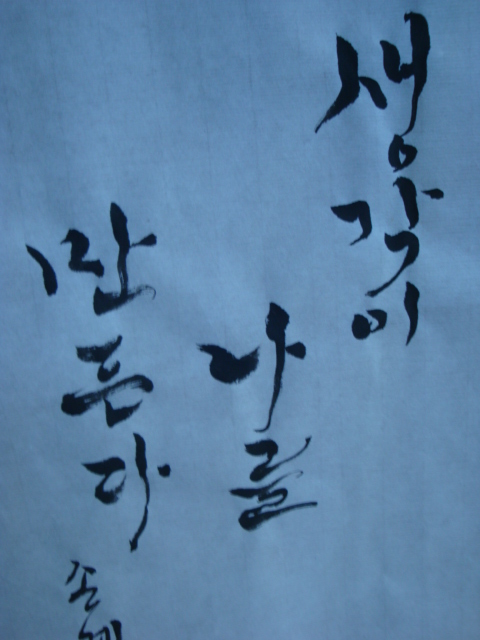 생각이
나를
만든다
손혜